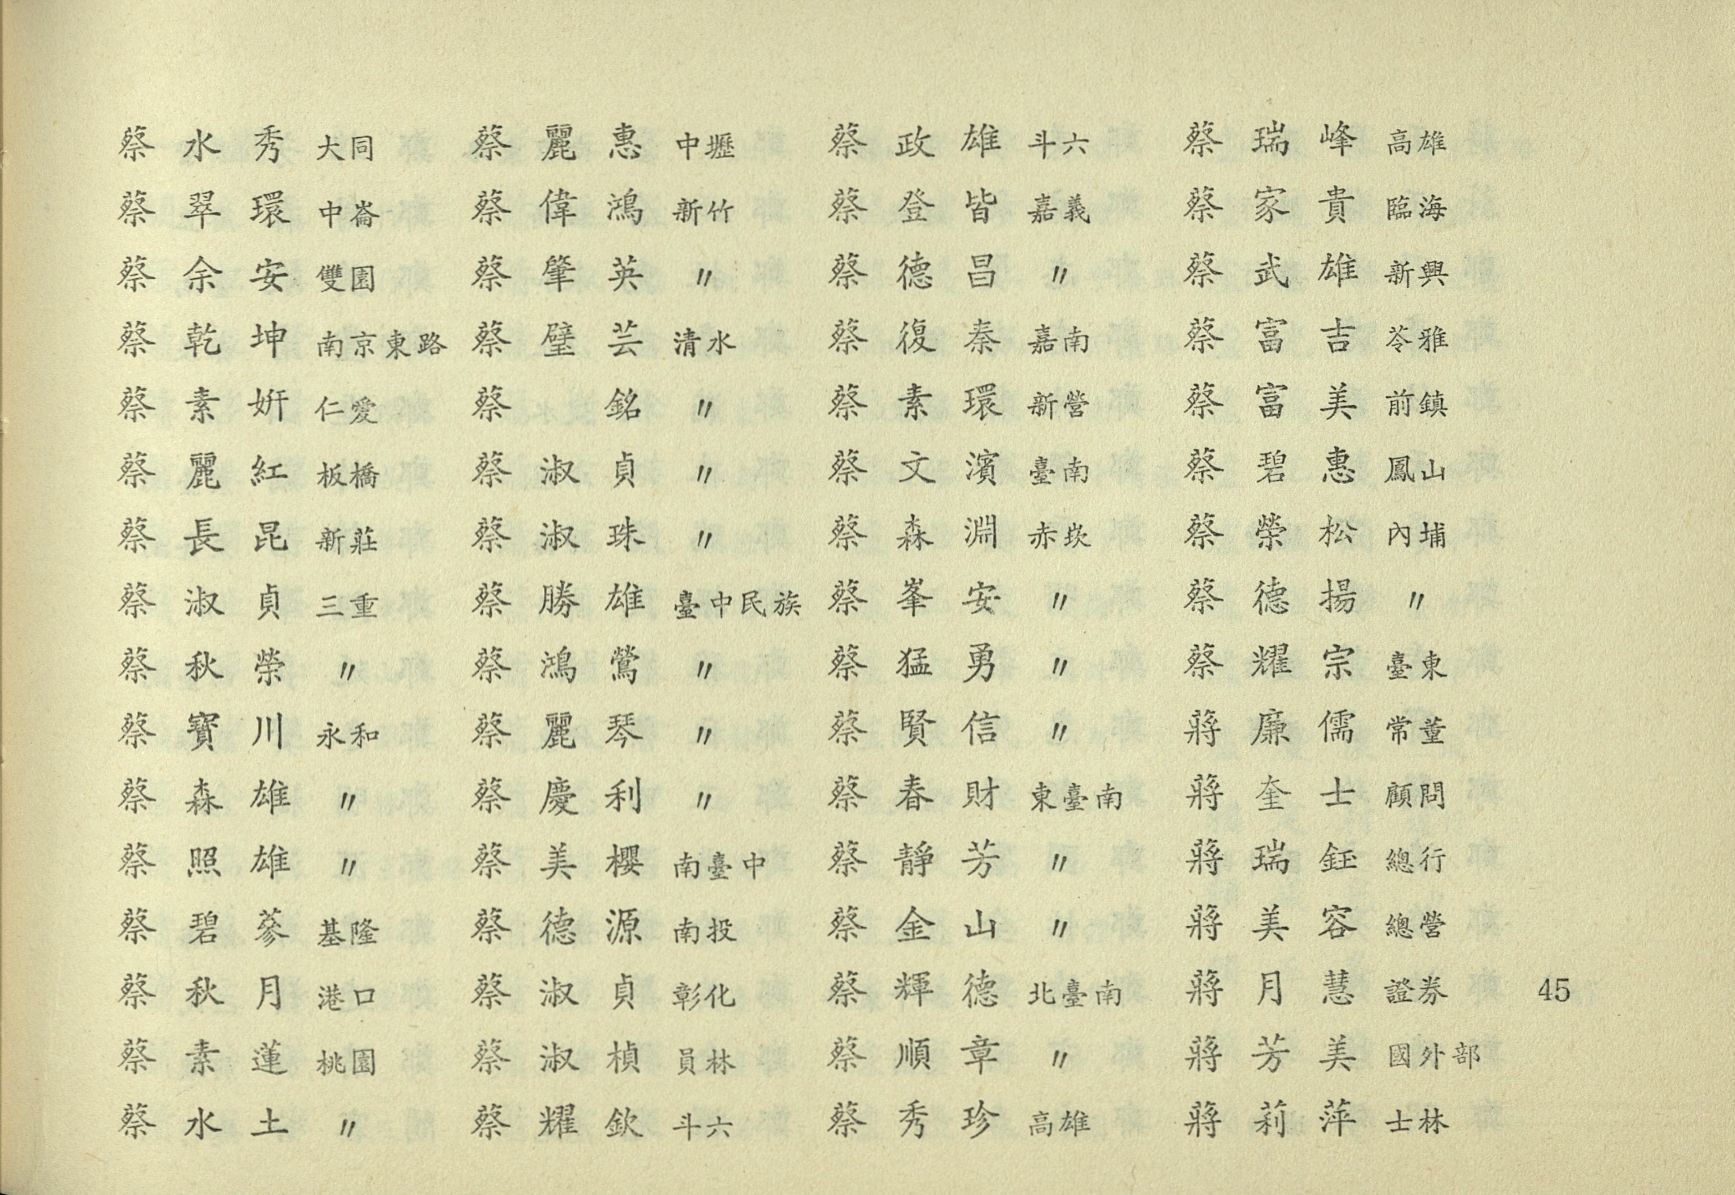 蔡水秀 大同
蔡翠環 中崙
蔡余安 雙園
蔡乾坤 南京東路
蔡素姸 仁愛
蔡麗紅 板橋
蔡長昆 新莊
蔡淑貞 三重
蔡秋榮 〃
蔡寶川 永和
蔡森雄 〃
蔡照雄 〃
蔡碧蔘 基隆
蔡秋月 港口
蔡素蓮 桃園
蔡水土 〃
蔡麗惠 中壢
蔡偉鴻 新竹
蔡肇英 〃
蔡璧芸 清水
蔡銘 〃
蔡淑貞 〃
蔡淑珠 〃
蔡勝雄 臺中民族
蔡鴻鶯 〃
蔡麗琴 〃
蔡慶利 〃
蔡美櫻 南臺中
蔡德源 南投
蔡淑貞 彰化
蔡淑楨 員林
蔡耀欽 斗六
蔡政雄 斗六
蔡登皆 嘉義
蔡德昌 〃
蔡復秦 嘉南
蔡素環 新營
蔡文濱 臺南
蔡森淵 赤崁
蔡峯安 〃
蔡猛勇 〃
蔡賢信 〃
蔡春財 東臺南
蔡靜芳 〃
蔡金山 〃
蔡輝德 北臺南
蔡順章 〃
蔡秀珍 高雄
蔡瑞峰 高雄
蔡家貴 臨海
蔡武雄 新興
蔡富吉 苓雅
蔡富美 前鎮
蔡碧惠 鳳山
蔡榮松 內埔
蔡德揚 〃
蔡耀宗 臺東
蔣廉儒 常董
蔣奎士 顧問
蔣瑞鈺 總行
蔣美容 總營
蔣月慧 證券
蔣芳美 國外部
蔣莉萍 士林
45